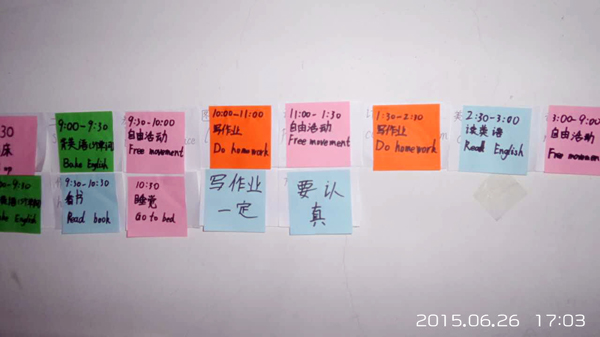 30
床
9:00-9:30
背英语
Bake English
9:30-10:00
自由活动
Free movement
10:00-11:00
写作业
Do homework
11:00-1:30
自由活动
Free movement
1:30-2:30
写作业
Do homework
2:30-3:00
读英语
Read English
3:00-9:00
自由活动
Free movement
9:00-9:30
Bake English
9:30-10:30
看书
Read book
10:30
睡觉
Go to bed
写作业
一定
要认
真
2015.06.26 17:03